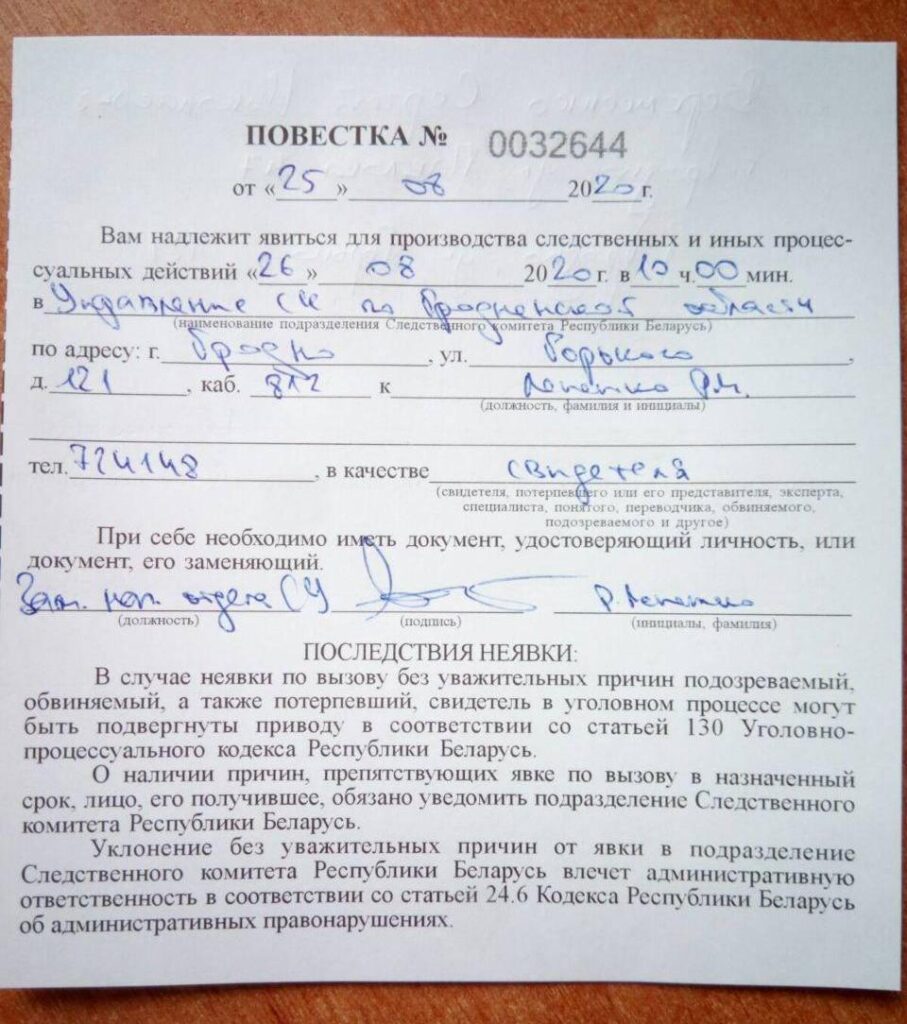 ПОВЕСТКА № 0032644
от «25» 08 2020 г.
Вам надлежит явиться для производства следственных и иных процес-
суальных действий «26» 08 2020 г. в 10 ч. 00 мин.
в Управление СК по Гродненской области
(наименование подразделения Следственного комитета Республики Беларусь)
по адресу: г. Гродно, ул. Горького,
д. 121, каб. 812 к Лепетко Р.М.
(должность, фамилия и инициалы)
тел. 724148, в качестве свидетеля
(свидетеля, потерпевшего или его представителя, эксперта,
специалиста, понятого, переводчика, обвиняемого,
подозреваемого и другое)
При себе необходимо иметь документ, удостоверяющий личность, или
документ, его заменяющий.
Зам. нач. отдела СУ Р. Лепетко
(должность) (подпись) (инициалы, фамилия)
ПОСЛЕДСТВИЯ НЕЯВКИ:
В случае неявки по вызову без уважительных причин подозреваемый,
обвиняемый, а также потерпевший, свидетель в уголовном процессе могут
быть подвергнуты приводу в соответствии со статьей 130 Уголовно-
процессуального кодекса Республики Беларусь.
О наличии причин, препятствующих явке по вызову в назначенный
срок, лицо, его получившее, обязано уведомить подразделение Следственного
комитета Республики Беларусь.
Уклонение без уважительных причин от явки в подразделение
Следственного комитета Республики Беларусь влечет административную
ответственность в соответствии со статьей 24.6 Кодекса Республики Беларусь
об административных правонарушениях.